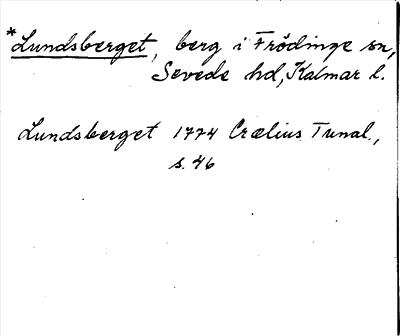 *Lundsberget, berg i Frödinge sn,
Sevede hd, Kalmar l.
Lundsberget 1774 Crælius Tunal.,
s. 46